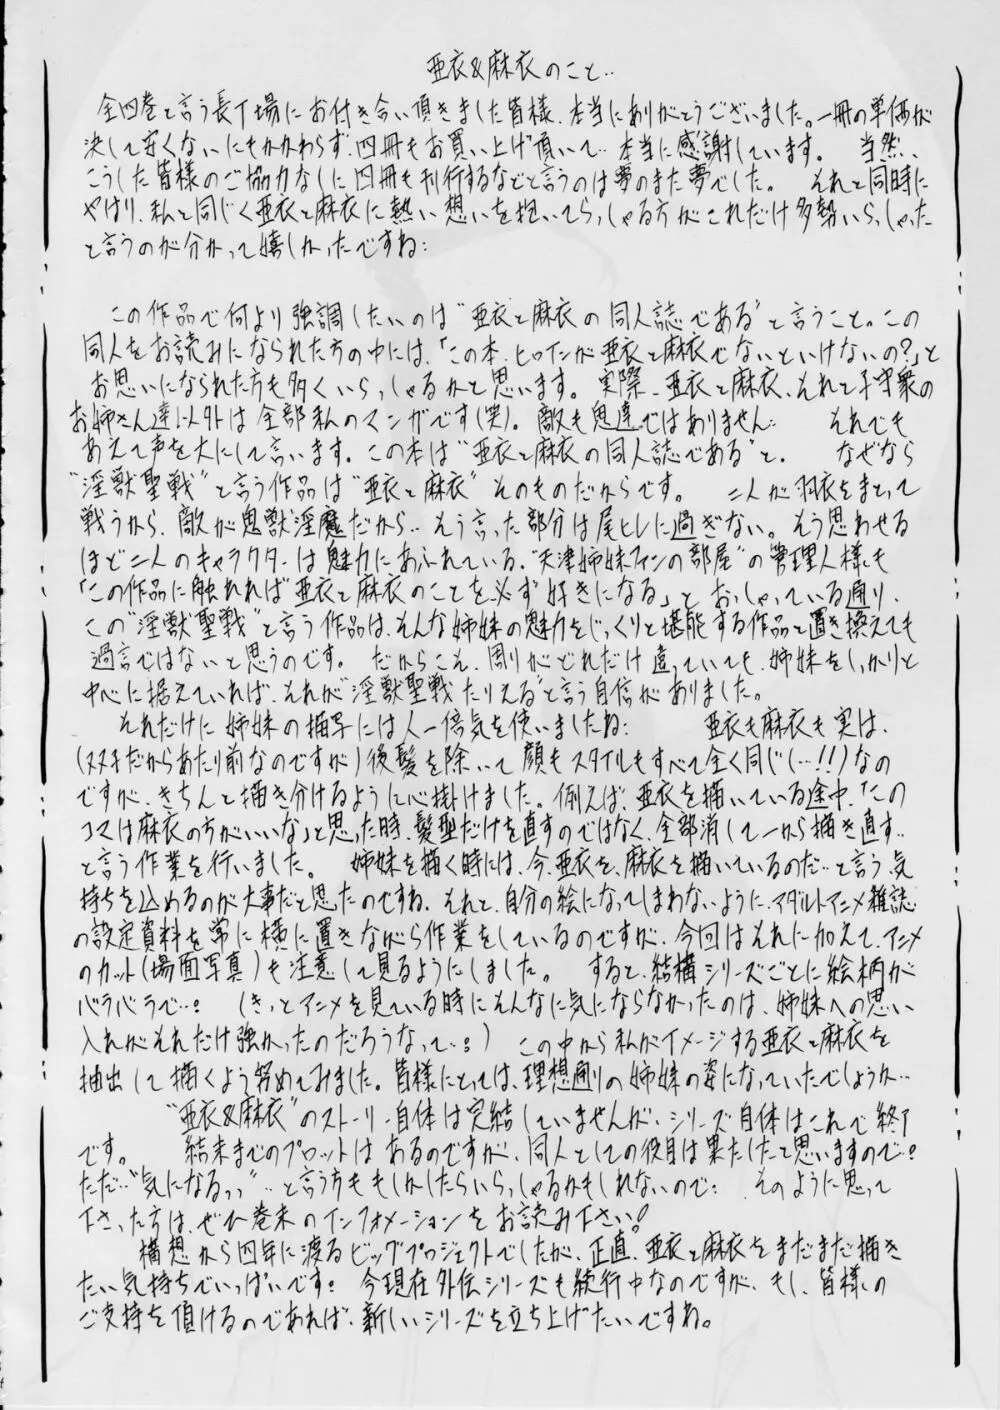 亜衣&麻衣のこと‥
全四巻と言う長丁場にお付き合い頂きました皆様、本当にありがとうございました。一冊の単価が
決して安くないにもかかわらず、四冊もお買い上げ頂いて‥本当に感謝しています。 当然、
こうした皆様のご協力なしに四冊も刊行するなどと言うのは夢のまた夢でした。 それと同時に
やはり、私と同じく亜衣と麻衣に熱い想いを抱いてらっしゃる方がこれだけ多勢いらっしゃった
と言うのが分かって嬉しかったですね:
この作品で何より強調したいのは“亜衣と麻衣の同人誌である”と言うこと。この
同人をお読みになられた方の中には、「この本、ヒロインが亜衣と麻衣でないといけないの?」と
お思いになられた方も多くいらっしゃるかと思います。実際、亜衣と麻衣、それと子守衆の
お姉さん達以外は全部私のマンガです(笑)。敵も鬼達ではありません: それでも
あえて声を大にして言います。この本は“亜衣と麻衣の同人誌である”と. なぜなら
“淫獣聖戦”と言う作品は“亜衣と麻衣”そのものだからです。 二人が羽衣をまとって
戦うから、敵が鬼獣淫魔だから‥そう言った部分は尾ヒレに過ぎない。そう思わせる
ほど二人のキャラクターは魅力にあふれている、“天津姉妹ファンの部屋”の管理人様も
「この作品に触れれば亜衣と麻衣のことを必ず好きになる」とおっしゃっている通り、
この“淫獣聖戦”と言う作品は、そんな姉妹の魅力をじっくりと堪能する作品と置き換えても
過言ではないと思うのです。 だからこそ、周りがどれだけ違っていても、姉妹をしっかりと
中心に据えていれば、それが“淫獣聖戦たりえる”と言う自信がありました。
それだけに姉妹の描写には人一倍気を使いましたね: 亜衣も麻衣も実は、
(双子だからあたり前なのですが)後髪を除いて顔もスタイルもすべて全く同じ(…!!)なの
ですが、きちんと描き分けるように心掛けました。例えば、亜衣を描いている途中、「この
コマは麻衣の方がいいな」と思った時、髪型だけを直すのではなく、全部消して一から描き直す‥
と言う作業を行いました。 姉妹を描く時には、今、亜衣を、麻衣を描いているのだ‥と言う気
持ちを込めるのが大事だと思ったのですね、それと、自分の絵になってしまわないように、アダルトアニメ雑誌
の設定資料を常に横に置きながら作業をしているのですが、今回はそれに加えて、アニメ
のカット(場面写真)も注意して見るようにしました。 すると、結構シリーズごとに絵柄が
バラバラで‥: (きっとアニメを見ている時にそんなに気にならなかったのは、姉妹への思い
入れがそれだけ強かったのだろうなって‥:) この中から私がイメージする亜衣と麻衣を
抽出して描くよう努めてみました。皆様にとっては、理想通りの姉妹の姿になっていたでしょうか‥
“亜衣&麻衣”のストーリー自体は完結していませんが、シリーズ自体はこれで終了
です。 結末までのプロットはあるのですが、同人としての役目は果たしたと思いますので‥:
ただ‥“気になるっっ”‥と言う方ももしかしたらいらっしゃるかもしれないので: そのように思って
下さった方は、ぜひ巻末のインフォメーションをお読み下さい!
構想から四年に渡るビッグプロジェクトでしたが、正直、亜衣と麻衣をまだまだ描き
たい気持ちでいっぱいです: 今現在外伝シリーズも続行中なのですが、もし、皆様の
ご支持を頂けるのであれば、新しいシリーズを立ち上げたいですね。